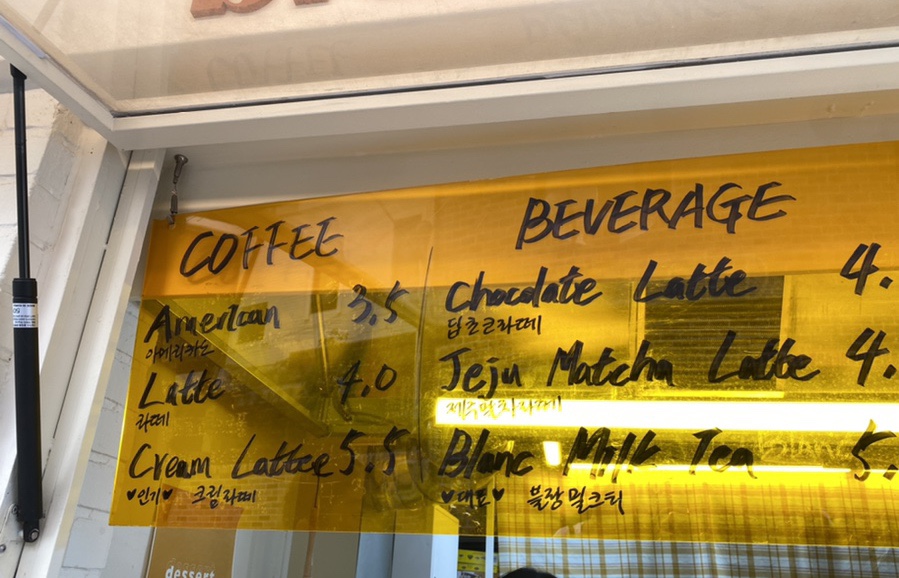 COFFEE
American 3.5
아메리카노
Latte 4.0
라떼
Cream Lattee 5.5
♥인기♥ 크림라떼
BEVERAGE
Chocolate Latte 4.
딥초코라떼
Jeju Matcha Latte 4.
제주말차라떼
Blanc Milk Tea 5.
♥대표♥ 블랑밀크티
dessert